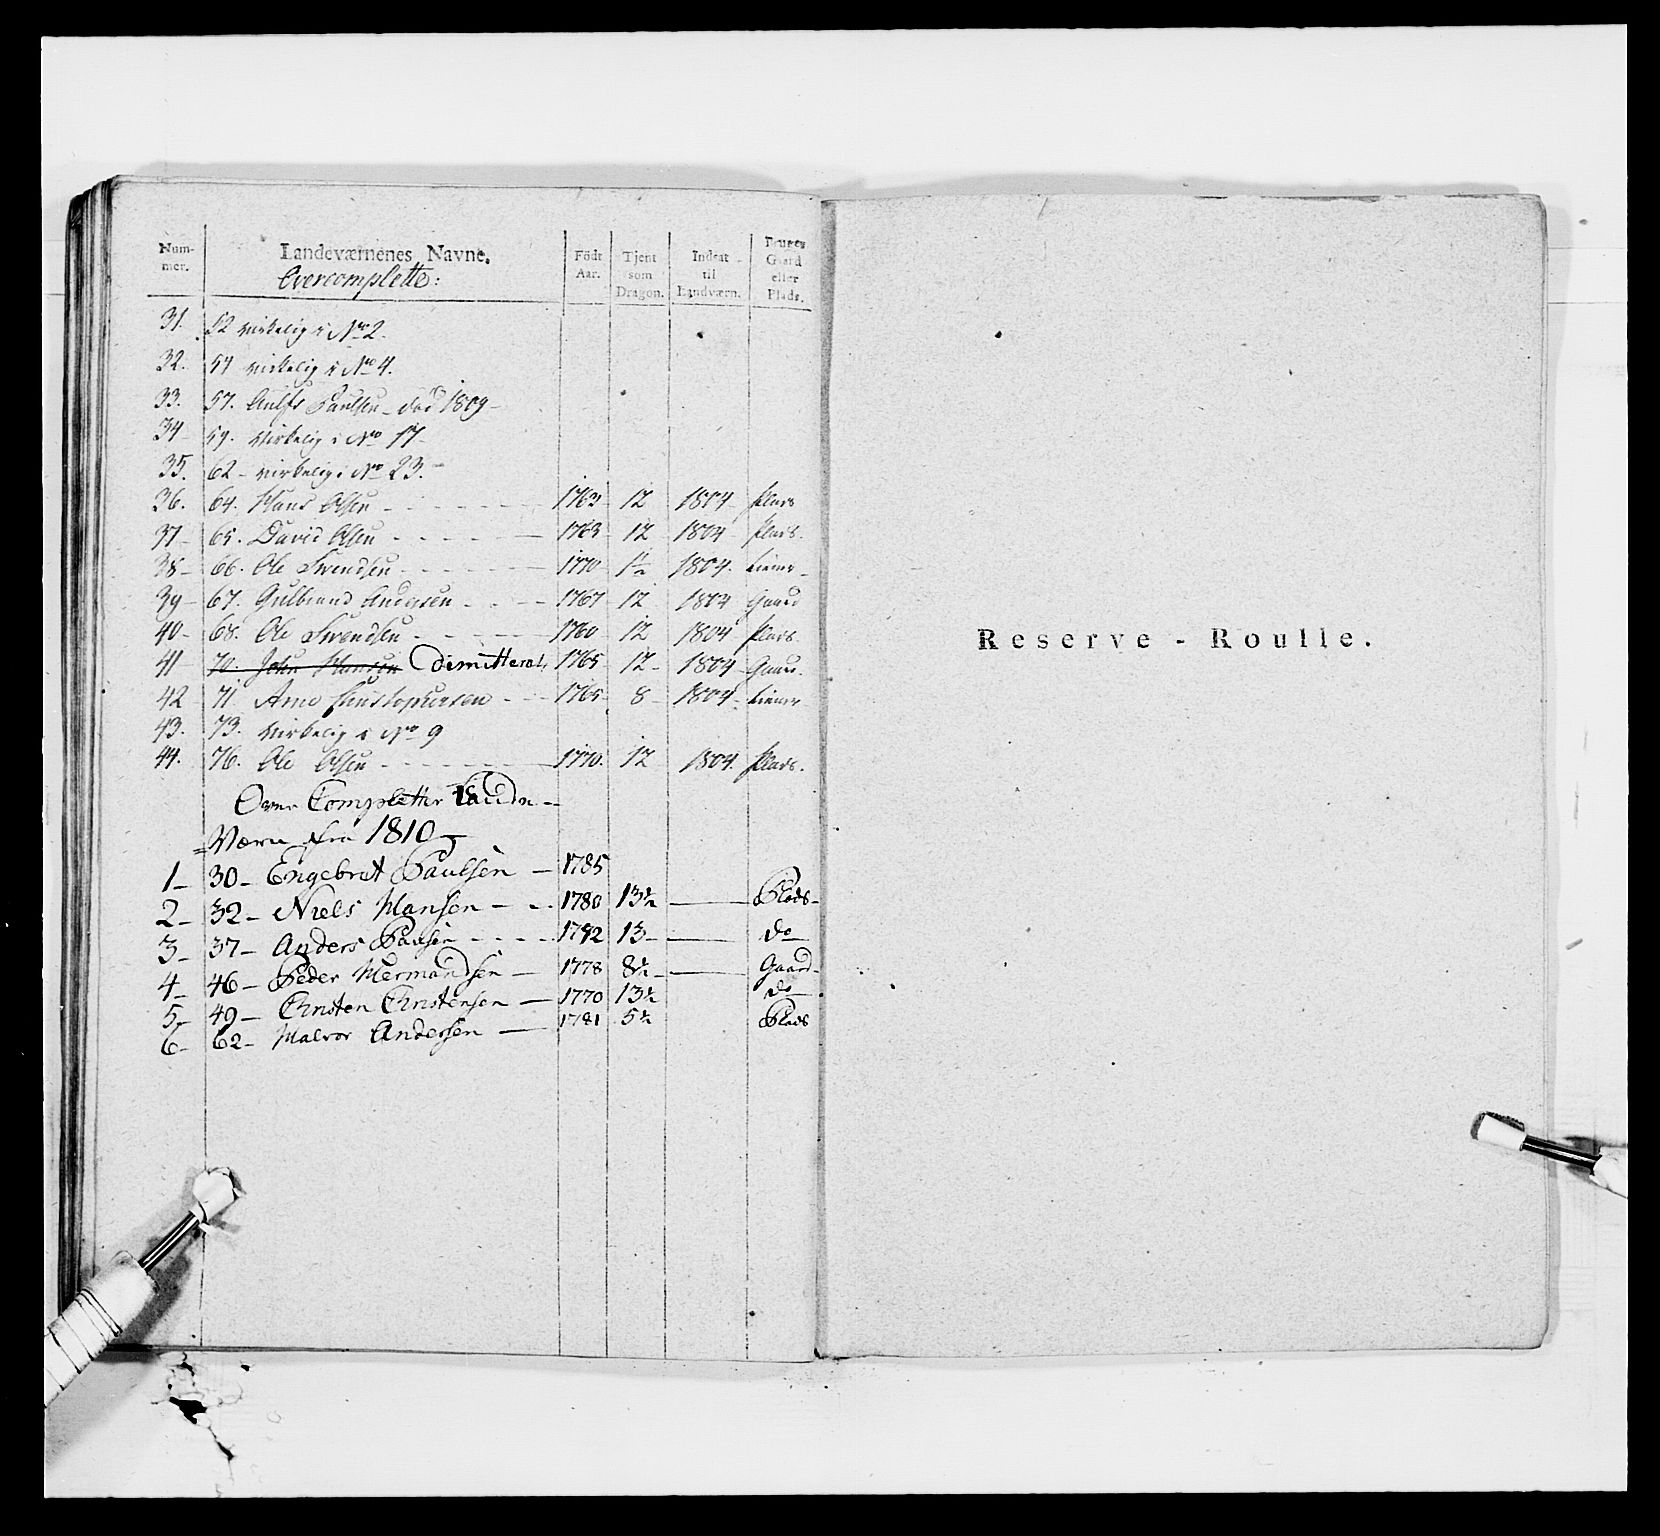 Num-mer. Landeværnenes Navne. Födt Aar. Tjent som Dragon. Indsat til Landværn. Bruger Gaard eller Plads.
Overcomplette:
31. 52 virkelig i No 2.
32. 54 virkelig i No 4.
33. 57. Paulsen - død 1809 -
34 - 59. virkelig i No 17 -
35. 62 - virkelig i No 23. -
36. 64. Hans Olsen - - - 1763 - 12 1804 - Plads
37 - 65. David Olsen - - - 1763 - 12 1804 - Plads.
38 - 66. Ole Svendsen - - - 1770 - 1804.
39 - 67. Gulbrand Andersen - - - 1767 - 12 1804 Gaard
40 - 68. Ole Svendsen - - - 1760 - 12 1804 Plads.
41 - 70. John Hansen Dimitteret, 1765 - 12 - 1804 - Gaard.
42 71 Arne Christophersen - - - 1765 - 8 - 1804 -
43. 73. virkelig i No 9
44. 76. Ole Olsen - - - 1770. 12 1804. Plads.
Over Completter Landn -
= Værn fra 1810 -
1 - 30 - Engebret Paulsen - 1785
2 - 32 - Niels Hansen - - 1780 13½ — Plads -
3 - 37 - Anders Paulsen - - - 1792 13 - — do
4 - 46 - Peder Hermandsen - 1778 8½ - — Gaard -
5 - 49 - Christen Christensen - 1770 13½ do
6 - 62 - Halvor Andersen - 1781 5½ Plads
Reserve - Roulle.